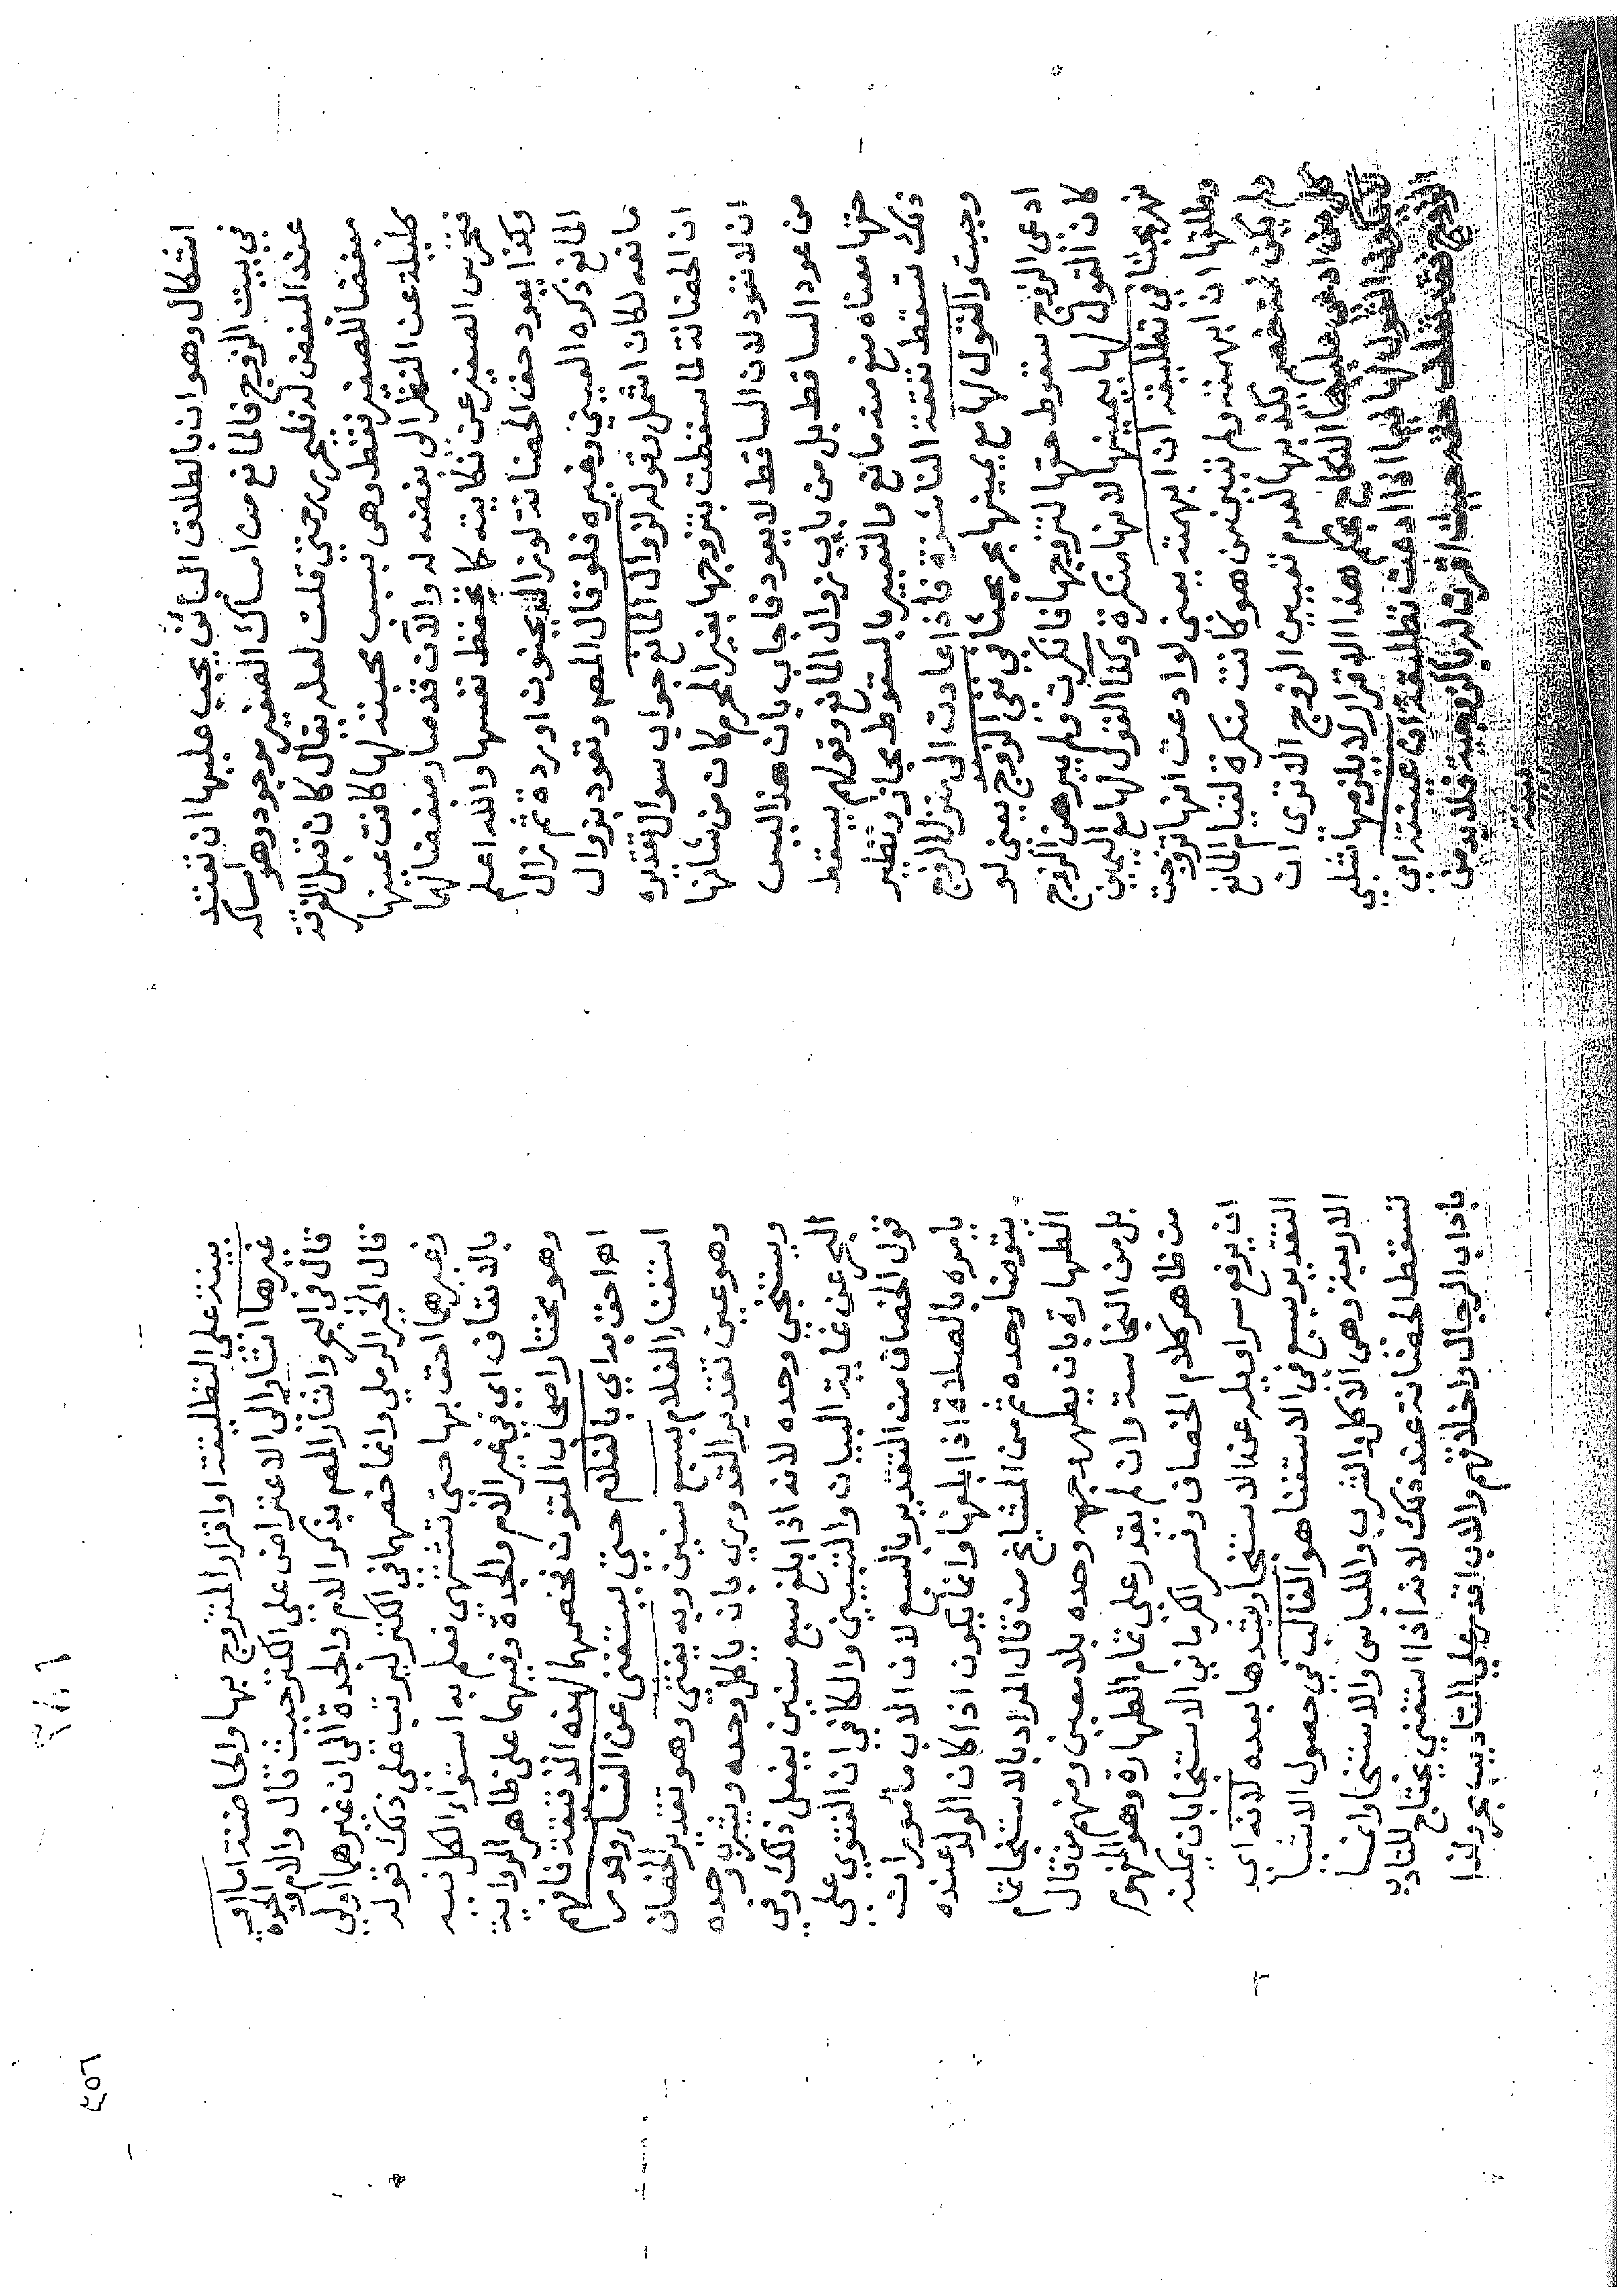 اشكال وهو ان بالطلاق البائن يجب عليها ان تعتد
في بيت الزوج فالمانع من امساك الصغير موجود وهو امساكه
عند المبغض له فليحرر رحمتي قلت لعله يقال كان قبل الفرقة
مبغضا للصغير فقط وهي بسبب محبته لها كانت عينها
كليلة عن النظر الى بغضه له والآن قد صار مبغضا لهما
فتحرس الصغير عن نكايته كما تحفظ نفسها والله اعلم
وكذا يعود حق الحضانة لو زال بجنون او ردة ثم زال
المانع ذكره العيني وغيره فلو قال المصم وتعود بزوال
مانعه لكان اشمل وقوله لزوال المانع جواب سوال تقديره
ان الحضانة لما سقطت بتزوجها بغير المحرم كان من شانها
ان لا تعود لان الساقط لا يعود فاجاب بان هذا ليس
من عود الساقط بل من باب زوال المانع وقولهم يسقط
حقها معناه منع منه مانع والتعبير بالسقوط مجاز ونظير
ذلك تسقط نفقة الناشزة فاذا عادت الى منزل الزوج
وجبت والقول لها مع يمينها بحر بحثا في نفى الزوج يعنى لو
ادعى الزوج سقوط حقها لتزوجها فانكرت ولم يبرهن الزوج
كان القول لها بيمينها لانها منكرة وكذا القول لها مع اليمين
نهر بحثا في تطليقه ان ابهمته يعنى لو ادعت انها تزوجت
وطلقها ان ابهمته ولم تبين من هو كانت منكرة لقيام المانع
ولم يكن خصم يكذبها لعدم تعيين الزوج الا ترى ان
كل من ادعى عليها النكاح بحكم هذا الاقرار لا يلزمها شلبي
لا يكون القول لها فيما اذا ادعت تطليقه ان عينته اي
الزوج فقد ثبت حقه حيث اقرت له بالزوجية فلا بد من
بينة
بينة على التطليقة او اقرار المتزوج بها والحاضنة اما او
غيرها اشار الى الاعتراض على الكنز حيث قال والام والجدة
قال في البحر واشار المصم بذكر الام والجدة الى ان غيرهما اولى
قال الخير الرملي وانما خصهما في الكنز ليرتب على ذلك قوله
وغيرهما احق بها حتى تشتهى فعلم به استواء الكل فيه
بالاتفاق اي في غير الام والجدة وفيهما على ظاهر الرواية
وهو مختار اصحاب المتون فخصهما لهذه الدقيقة فافهم
اهـ احق به اي بالغلام حتى يستغنى عن النساء وقدر
استغناء الغلام بسبع سنين وبه يفتى وهو تقدير الخصاف
وهو عين تقدير القدوري بان ياكل وحده ويشرب وحده
ويستنجي وحده لانه اذا بلغ سبع سنين يفعل ذلك وفي
البحر عن غاية البيان والتبيين والكافي ان الفتوى على
قول الخصاف من التقدير بالسبع لان الاب مأمور ان
يامره بالصلاة اذا بلغها وانما يكون اذا كان الولد عنده
ثم من المشايخ من قال المراد بالاستنجا تمام
الطهارة بان يطهر وجهه وحده بلا معين ومنهم من قال
بل من النجاسة وان لم يقدر على تمام الطهارة وهو المفهوم
من ظاهر كلام الخصاف وفسر الكرماني الاستنجا بان يمكنه
ان يرفع سراويله عن الاستنجا ويشدها بعده لانه اي
التقدير بسبع في الاستغنا هو الغالب في حصول الاشيا
الاربعة وهي الاكل والشرب واللباس والاستنجا وانما
تسقط الحضانة عند ذلك لانه اذا استغنى يحتاج للتاديب
باداب الرجال واخلاقهم والاب اقدر على التاديب بحر ولذا
٤٥٦